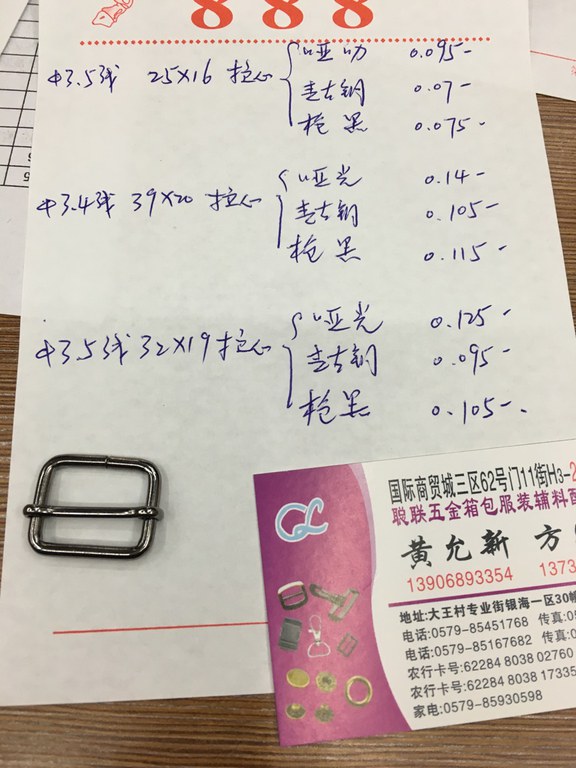 888
中3.5线 25×16 拉心
哑叻 0.095-
青古铜 0.07-
枪黑 0.075-
中3.4线 39×20 拉心
哑光 0.14-
青古铜 0.105-
枪黑 0.115-
中3.5线 32×19 拉心
哑光 0.125-
青古铜 0.095-
枪黑 0.105-.
国际商贸城三区62号门11街H3-2
聪联五金箱包服装辅料
黄允新 方
13906893354 1373
地址:大王村专业街银海一区30幢
电话:0579-85451768 传真:05
电话:0579-85167682 传真:0
农行卡号:62284 8038 02760
农行卡号:62284 8038 17335
家电:0579-85930598